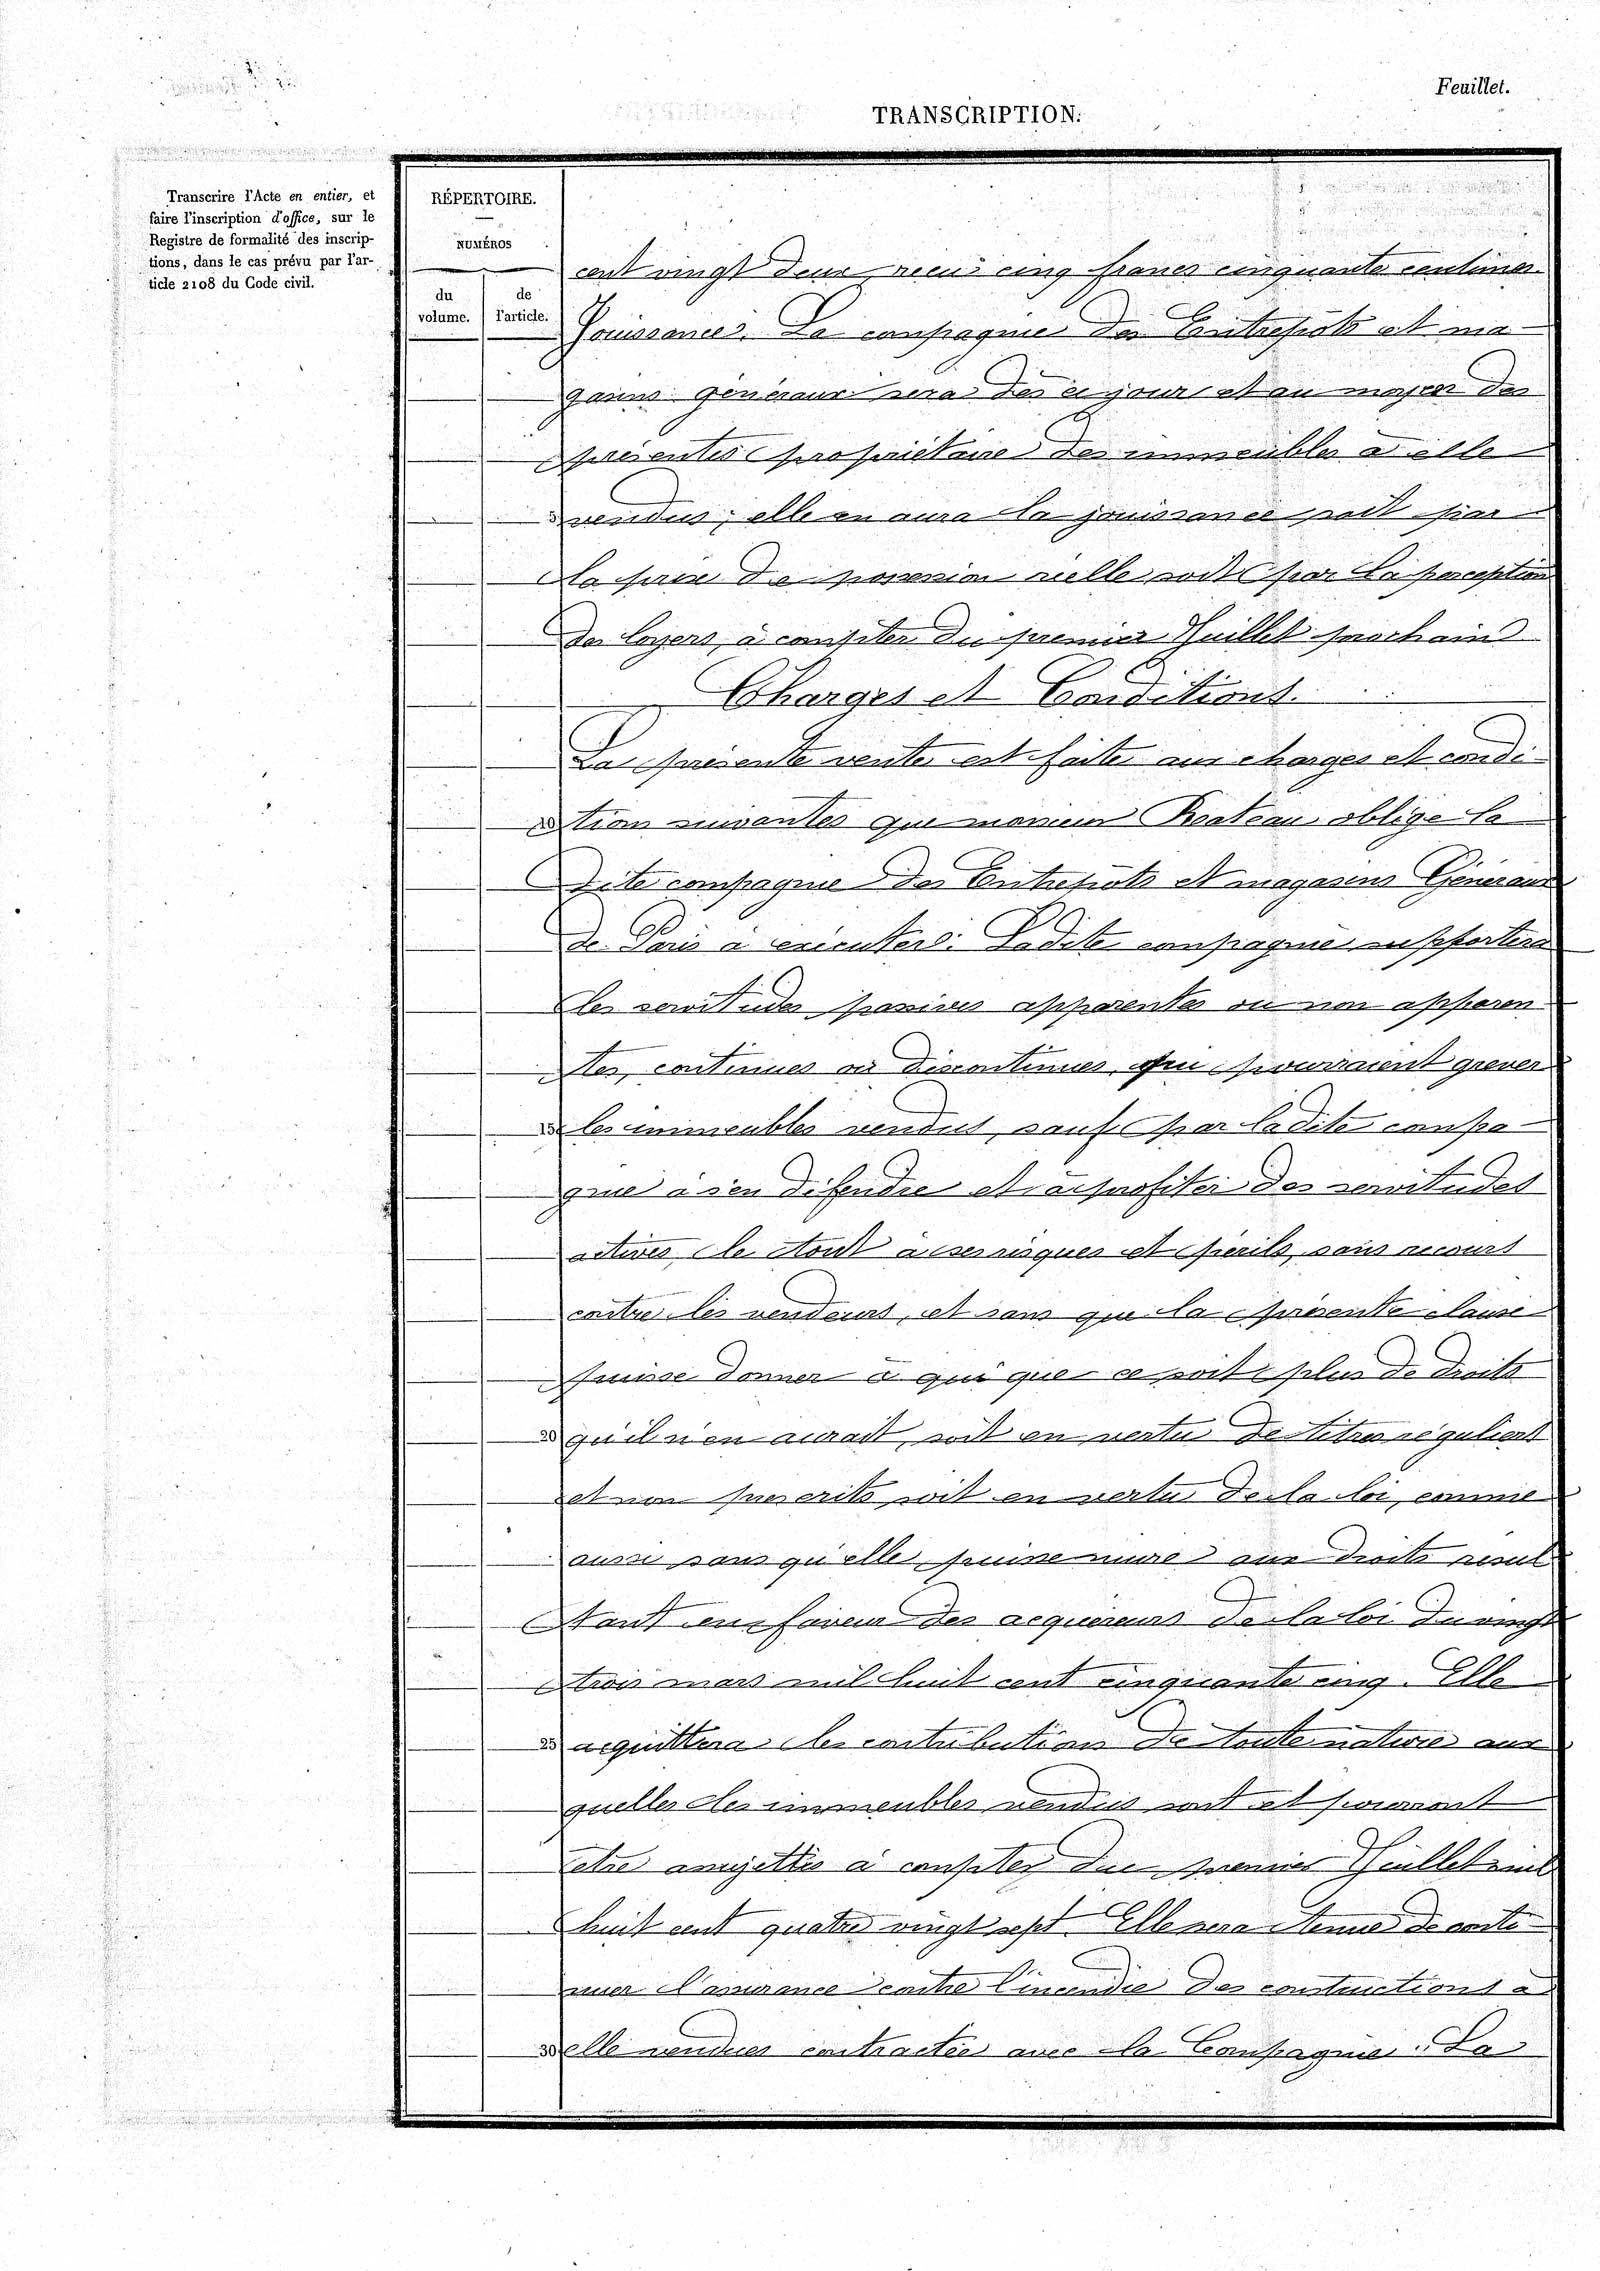 Feuillet.
TRANSCRIPTION.
Transcrire l'Acte en entier, et
faire l'inscription d'office, sur le
Registre de formalité des inscrip-
tions, dans le cas prévu par l'ar-
ticle 2108 du Code civil.
RÉPERTOIRE.
NUMÉROS
du
volume.
de
l'article.
cent vingt deux cinq francs cinquante centimes.
Jouissance. La compagnie des Entrepots et ma-
gasins généraux sera dès ce jour et au moyen des
présentes propriétaire des immeubles à elle
vendus; elle en aura la jouissance soit par
la prise de possession réelle soit par la perception
des loyers, à compter du premier Juillet prochain
Charges et Conditions.
La présente vente est faite aux charges et condi-
10 tion suivantes que monsieur oblige la
dite compagnie des Entrepôts et magasins Généraux
de Paris à exécuter: Ladite compagnie supportera
les servitudes passives apparentes ou non apparen
tes, continues ou discontinues, qui pourraient grever
15 les immeubles vendus, sauf par ladite compa-
gnie à s'en défendre et à profiter des servitudes
actives, le tout à ses risques et périls, sans recours
contre les vendeurs, et sans que la présente clause
puisse donner à qui que ce soit plus de droits
20 qu'il n'en aurait, soit en vertu de titres réguliers
et non prescrits soit en vertu de la loi, comme
aussi sans qu'elle puisse nuire aux droits résul
tant en faveur des acquéreurs de la loi du vingt
trois mars mil huit cent cinquante cinq. Elle
25 acquittera les contributions de toute nature aux
quelles les immeubles vendus sont et pourront
être assujettis à compter du premier Juillet mil
huit cent quatre vingt sept. Elle sera tenue de conti-
nuer l'assurance contre l'incendie des constructions à
30 elle vendues contractée avec la Compagnie. La